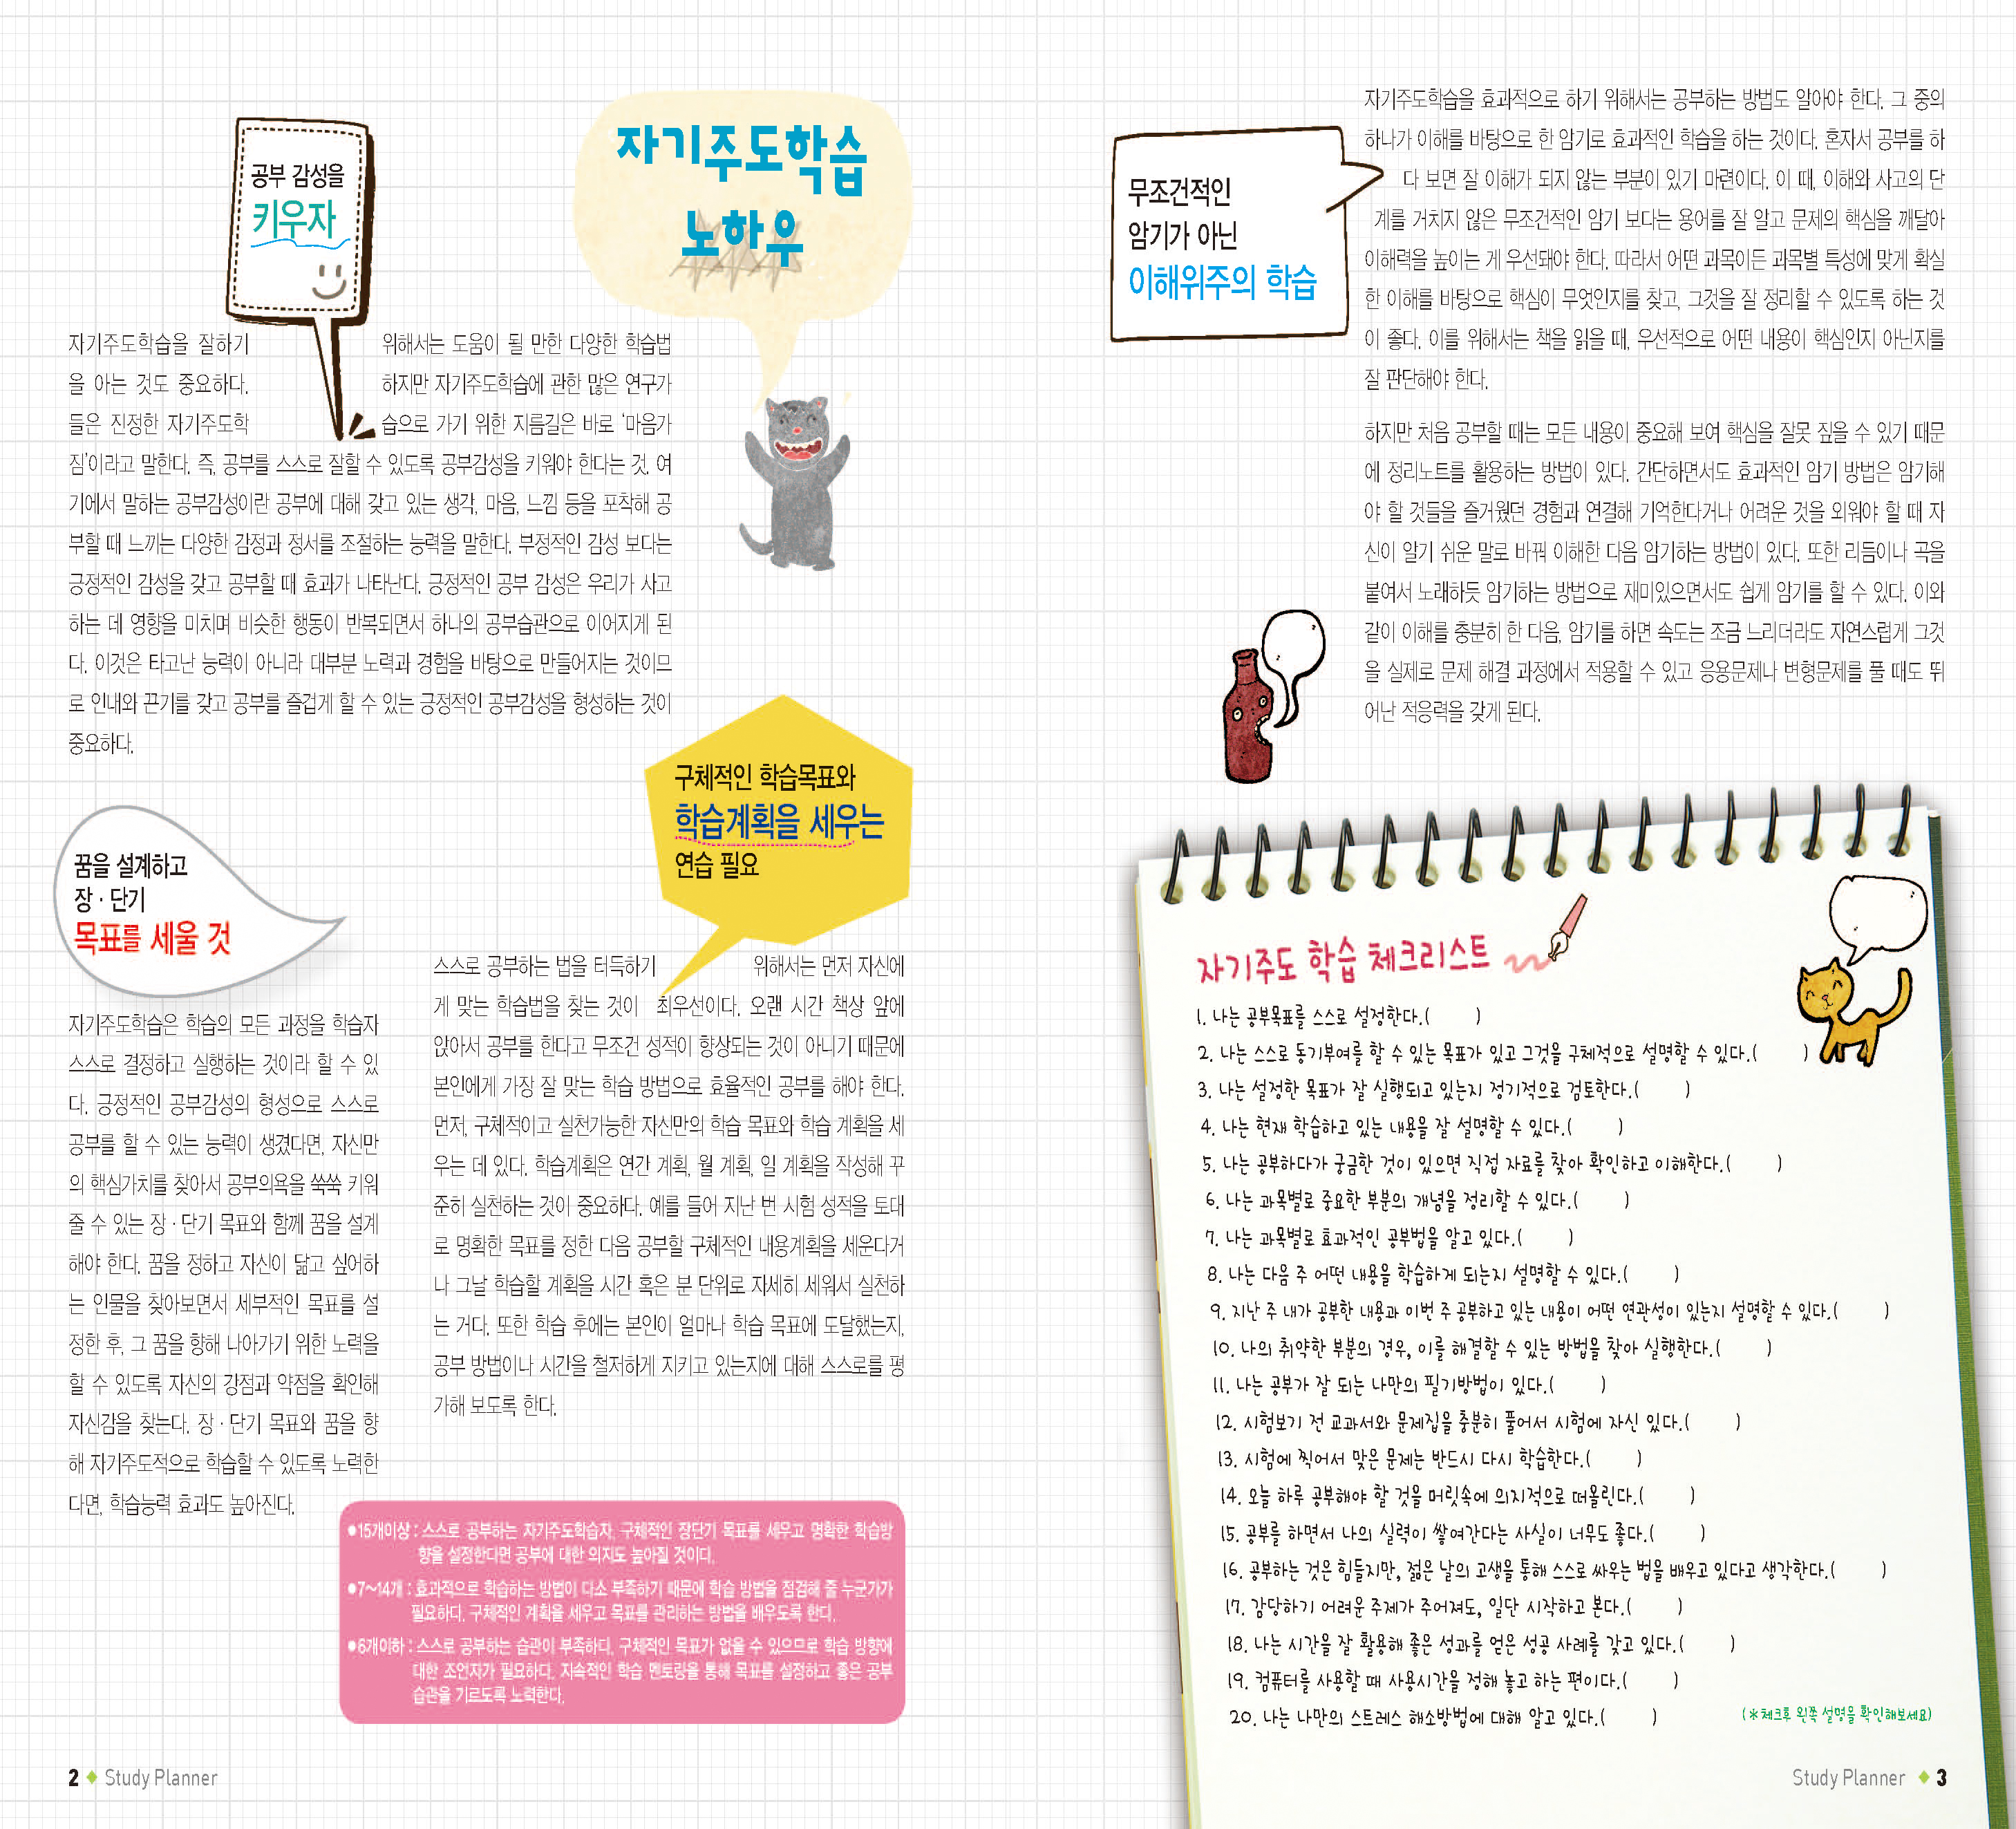 자기주도학습
노하우
공부 감성을
키우자
자기주도학습을 잘하기 위해서는 도움이 될 만한 다양한 학습법
을 아는 것도 중요하다. 하지만 자기주도학습에 관한 많은 연구가
들은 진정한 자기주도학습으로 가기 위한 지름길은 바로 ‘마음가
짐’이라고 말한다. 즉, 공부를 스스로 잘할 수 있도록 공부감성을 키워야 한다는 것. 여
기에서 말하는 공부감성이란 공부에 대해 갖고 있는 생각, 마음, 느낌 등을 포착해 공
부할 때 느끼는 다양한 감정과 정서를 조절하는 능력을 말한다. 부정적인 감성 보다는
긍정적인 감성을 갖고 공부할 때 효과가 나타난다. 긍정적인 공부 감성은 우리가 사고
하는 데 영향을 미치며 비슷한 행동이 반복되면서 하나의 공부습관으로 이어지게 된
다. 이것은 타고난 능력이 아니라 대부분 노력과 경험을 바탕으로 만들어지는 것이므
로 인내와 끈기를 갖고 공부를 즐겁게 할 수 있는 긍정적인 공부감성을 형성하는 것이
중요하다.
꿈을 설계하고
장·단기
목표를 세울 것
자기주도학습은 학습의 모든 과정을 학습자
스스로 결정하고 실행하는 것이라 할 수 있
다. 긍정적인 공부감성의 형성으로 스스로
공부를 할 수 있는 능력이 생겼다면, 자신만
의 핵심가치를 찾아서 공부의욕을 쑥쑥 키워
줄 수 있는 장·단기 목표와 함께 꿈을 설계
해야 한다. 꿈을 정하고 자신이 닮고 싶어하
는 인물을 찾아보면서 세부적인 목표를 설
정한 후, 그 꿈을 향해 나아가기 위한 노력을
할 수 있도록 자신의 강점과 약점을 확인해
자신감을 찾는다. 장·단기 목표와 꿈을 향
해 자기주도적으로 학습할 수 있도록 노력한
다면, 학습능력 효과도 높아진다.
구체적인 학습목표와
학습계획을 세우는
연습 필요
스스로 공부하는 법을 터득하기 위해서는 먼저 자신에
게 맞는 학습법을 찾는 것이 최우선이다. 오랜 시간 책상 앞에
앉아서 공부를 한다고 무조건 성적이 향상되는 것이 아니기 때문에
본인에게 가장 잘 맞는 학습 방법으로 효율적인 공부를 해야 한다.
먼저, 구체적이고 실천가능한 자신만의 학습 목표와 학습 계획을 세
우는 데 있다. 학습계획은 연간 계획, 월 계획, 일 계획을 작성해 꾸
준히 실천하는 것이 중요하다. 예를 들어 지난 번 시험 성적을 토대
로 명확한 목표를 정한 다음 공부할 구체적인 내용계획을 세운다거
나 그날 학습할 계획을 시간 혹은 분 단위로 자세히 세워서 실천하
는 거다. 또한 학습 후에는 본인이 얼마나 학습 목표에 도달했는지,
공부 방법이나 시간을 철저하게 지키고 있는지에 대해 스스로를 평
가해 보도록 한다.
●15개이상 : 스스로 공부하는 자기주도학습자. 구체적인 장단기 목표를 세우고 명확한 학습방
향을 설정한다면 공부에 대한 의지도 높아질 것이다.
●7~14개 : 효과적으로 학습하는 방법이 다소 부족하기 때문에 학습 방법을 점검해 줄 누군가가
필요하다. 구체적인 계획을 세우고 목표를 관리하는 방법을 배우도록 한다.
●6개이하 : 스스로 공부하는 습관이 부족하다. 구체적인 목표가 없을 수 있으므로 학습 방향에
대한 조언자가 필요하다. 지속적인 학습 멘토링을 통해 목표를 설정하고 좋은 공부
습관을 기르도록 노력한다.
2 ◆ Study Planner
무조건적인
암기가 아닌
이해위주의 학습
자기주도학습을 효과적으로 하기 위해서는 공부하는 방법도 알아야 한다. 그 중의
하나가 이해를 바탕으로 한 암기로 효과적인 학습을 하는 것이다. 혼자서 공부를 하
다 보면 잘 이해가 되지 않는 부분이 있기 마련이다. 이 때, 이해와 사고의 단
계를 거치지 않은 무조건적인 암기 보다는 용어를 잘 알고 문제의 핵심을 깨달아
이해력을 높이는 게 우선돼야 한다. 따라서 어떤 과목이든 과목별 특성에 맞게 확실
한 이해를 바탕으로 핵심이 무엇인지를 찾고, 그것을 잘 정리할 수 있도록 하는 것
이 좋다. 이를 위해서는 책을 읽을 때, 우선적으로 어떤 내용이 핵심인지 아닌지를
잘 판단해야 한다.
하지만 처음 공부할 때는 모든 내용이 중요해 보여 핵심을 잘못 짚을 수 있기 때문
에 정리노트를 활용하는 방법이 있다. 간단하면서도 효과적인 암기 방법은 암기해
야 할 것들을 즐거웠던 경험과 연결해 기억한다거나 어려운 것을 외워야 할 때 자
신이 알기 쉬운 말로 바꿔 이해한 다음 암기하는 방법이 있다. 또한 리듬이나 곡을
붙여서 노래하듯 암기하는 방법으로 재미있으면서도 쉽게 암기를 할 수 있다. 이와
같이 이해를 충분히 한 다음, 암기를 하면 속도는 조금 느리더라도 자연스럽게 그것
을 실제로 문제 해결 과정에서 적용할 수 있고 응용문제나 변형문제를 풀 때도 뛰
어난 적응력을 갖게 된다.
자기주도 학습 체크리스트
1. 나는 공부목표를 스스로 설정한다.( )
2. 나는 스스로 동기부여를 할 수 있는 목표가 있고 그것을 구체적으로 설명할 수 있다.( )
3. 나는 설정한 목표가 잘 실행되고 있는지 정기적으로 검토한다.( )
4. 나는 현재 학습하고 있는 내용을 잘 설명할 수 있다.( )
5. 나는 공부하다가 궁금한 것이 있으면 직접 자료를 찾아 확인하고 이해한다.( )
6. 나는 과목별로 중요한 부분의 개념을 정리할 수 있다.( )
7. 나는 과목별로 효과적인 공부법을 알고 있다.( )
8. 나는 다음 주 어떤 내용을 학습하게 되는지 설명할 수 있다.( )
9. 지난 주 내가 공부한 내용과 이번 주 공부하고 있는 내용이 어떤 연관성이 있는지 설명할 수 있다.( )
10. 나의 취약한 부분의 경우, 이를 해결할 수 있는 방법을 찾아 실행한다.( )
11. 나는 공부가 잘 되는 나만의 필기방법이 있다.( )
12. 시험보기 전 교과서와 문제집을 충분히 풀어서 시험에 자신 있다.( )
13. 시험에 찍어서 맞은 문제는 반드시 다시 학습한다.( )
14. 오늘 하루 공부해야 할 것을 머릿속에 의지적으로 떠올린다.( )
15. 공부를 하면서 나의 실력이 쌓여간다는 사실이 너무도 좋다.( )
16. 공부하는 것은 힘들지만, 젊은 날의 고생을 통해 스스로 싸우는 법을 배우고 있다고 생각한다.( )
17. 감당하기 어려운 주제가 주어져도, 일단 시작하고 본다.( )
18. 나는 시간을 잘 활용해 좋은 성과를 얻은 성공 사례를 갖고 있다.( )
19. 컴퓨터를 사용할 때 사용시간을 정해 놓고 하는 편이다.( )
20. 나는 나만의 스트레스 해소방법에 대해 알고 있다.( )
(*체크후 왼쪽 설명을 확인해보세요)
Study Planner ◆ 3